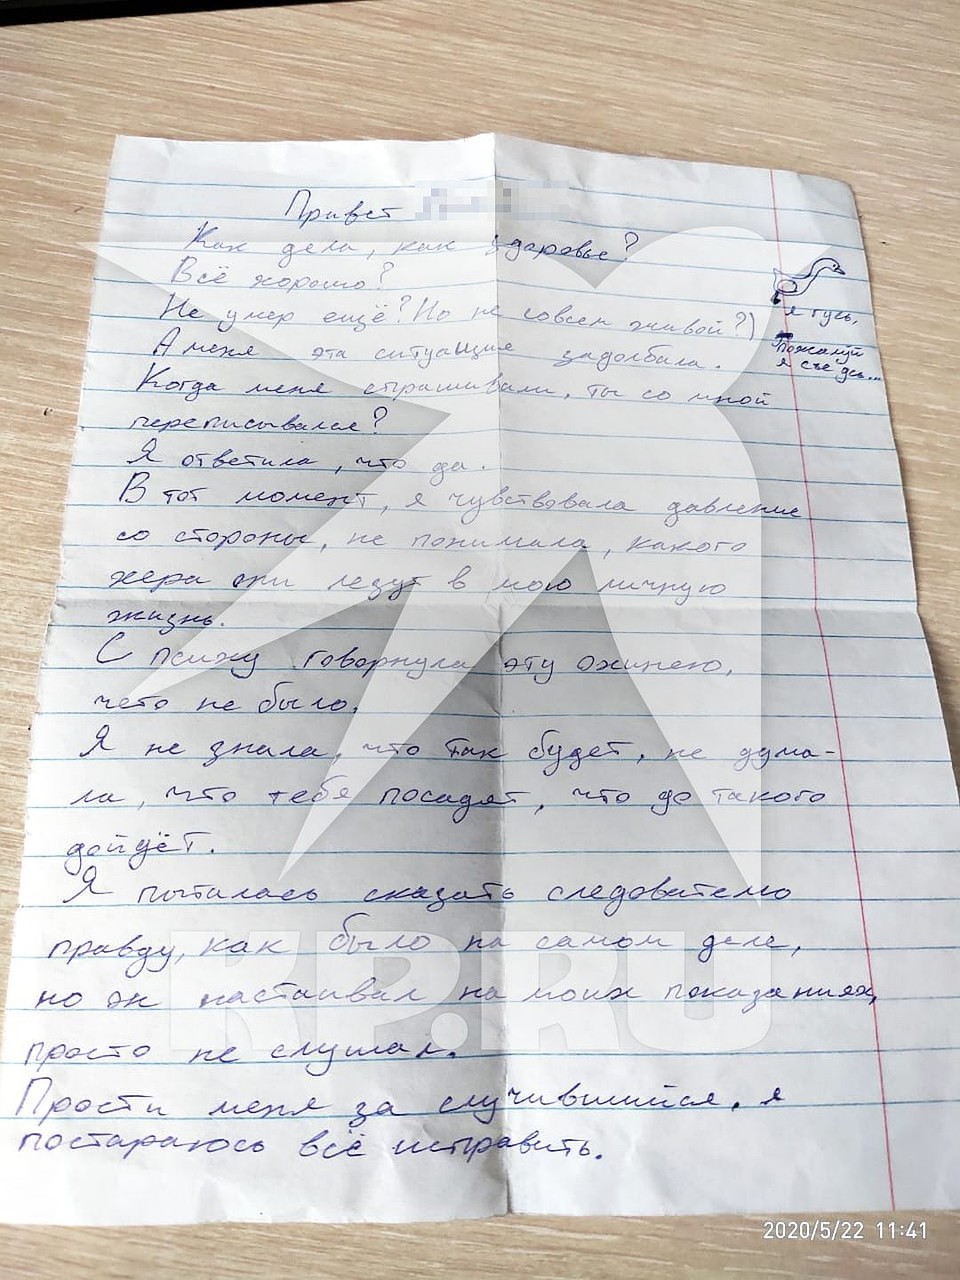 Привет
Как дела, как здоровье?
Всё хорошо?
Не умер ещё? Но не совсем живой?)
А меня эта ситуация задолбала.
Когда меня спрашивали, ты со мной
переписывался?
Я ответила, что да.
В тот момент, я чувствовала давление
со стороны, не понимала, какого
хера они лезут в мою личную
жизнь.
С психу говорнула эту ахинею,
чего не было.
Я не знала, что так будет, не дума-
ла, что тебя посадят, что до такого
дойдёт.
Я пыталась сказать следователю
правду, как было на самом деле,
но он настаивал на моих показаниях,
просто не слушал.
Прости меня за случившийся, я
постараюсь всё исправить.
я гусь,
пожалуй
я съедусь...
KP.RU
2020/5/22 11:41